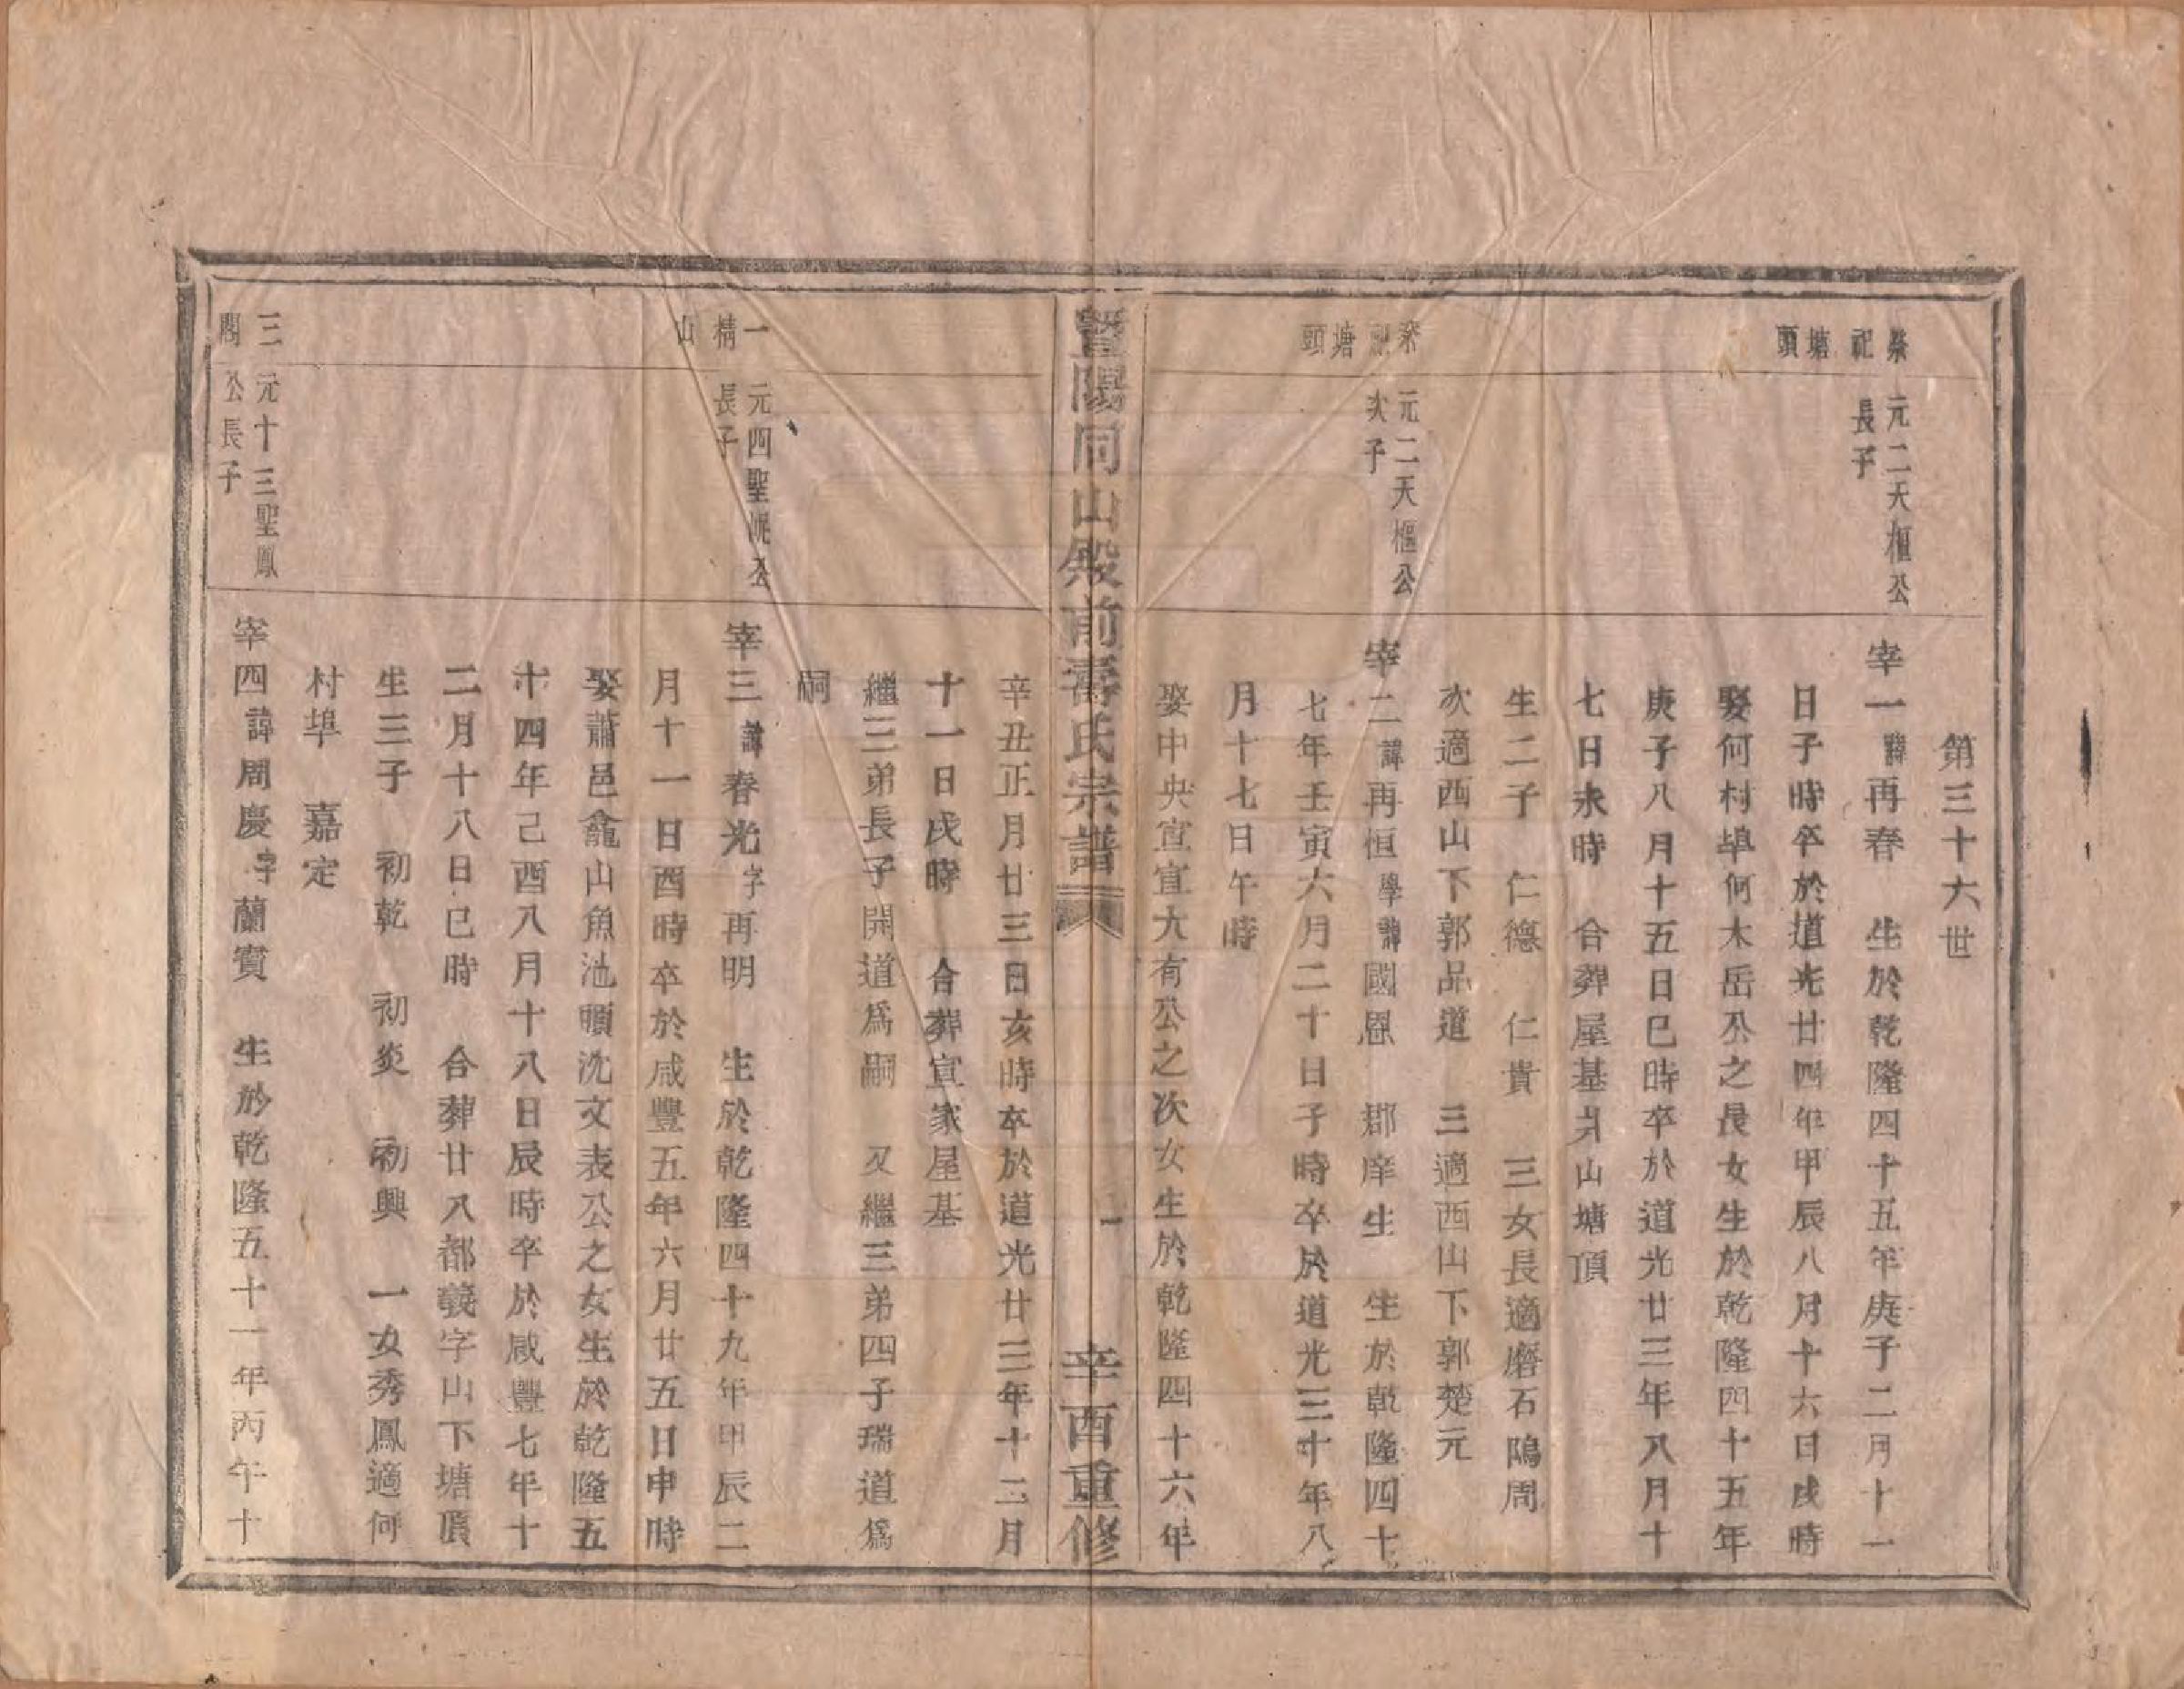 第三十六世
祭祀塘頭
元二天樞公長子
宰一諱再春　生於乾隆四十五年庚子二月十一
日子時卒於道光廿四年甲辰八月十六日戌時
娶何村埠何木岳公之長女生於乾隆四十五年
庚子八月十五日巳時卒於道光廿三年八月十
七日未時　合葬屋基爿山塘頂
生二子　仁德　仁貴　三女長適磨石鴡周
次適西山下郭品道　三適西山下郭楚元
祭祀塘頭
元二天樞公次子
宰二諱再恒學諱國恩　郡庠生　生於乾隆四十
七年壬寅六月二十日子時卒於道光三十年八
月十七日午時
娶中央宣宣大有公之次女生於乾隆四十六年
暨陽同山殿前壽氏宗譜　一　辛酉重修
辛丑正月廿三日亥時卒於道光廿三年十二月
十一日戌時　合葬宣家屋基
繼三弟長子開道爲嗣　又繼三弟四子瑞道爲
嗣
一精山
元四聖公長子
宰三諱春光字再明　生於乾隆四十九年甲辰二
月十一日酉時卒於咸豐五年六月廿五日申時
娶蕭邑龕山魚池頭沈文表公之女生於乾隆五
十四年己酉八月十八日辰時卒於咸豐七年十
二月十八日巳時　合葬廿八都義字山下塘頂
生三子　初乾　初炎　初興　一女秀鳳適何
村埠　嘉定
三閣
元十三聖鳳公長子
宰四諱周慶字蘭寶　生於乾隆五十一年丙午十